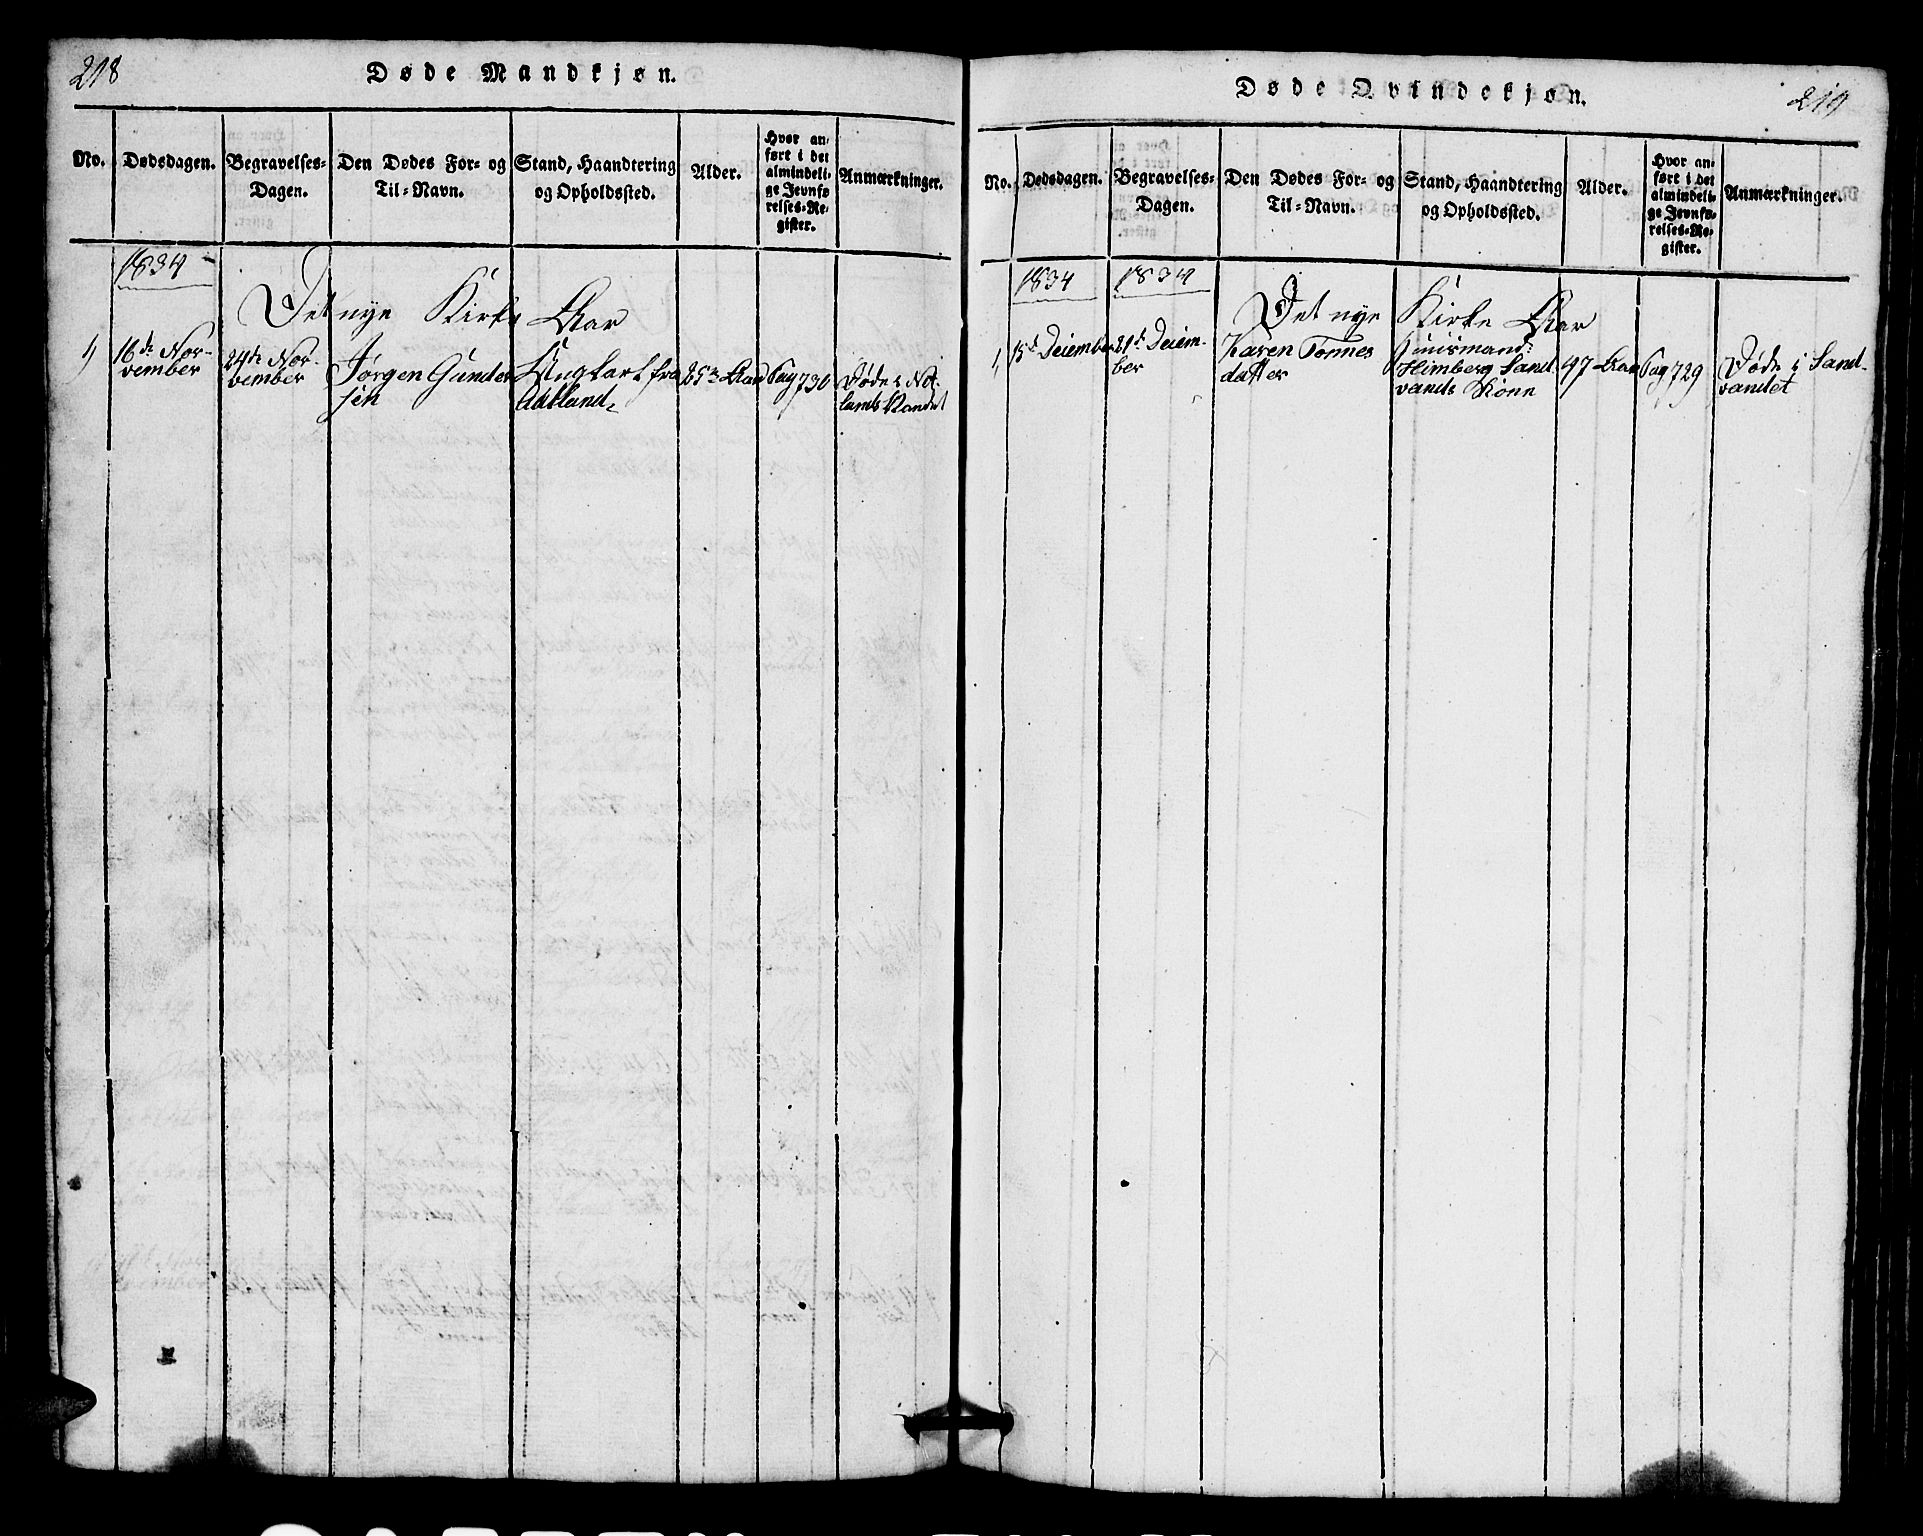 218
Døde Mandkjøn.
No.
Dødsdagen.
Begravelses-
Dagen.
Den Dødes For- og
Til-Navn.
Stand, Haandtering
og Opholdssted.
Alder.
Hvor an-
ført i det
almindeli-
ge Jevnfø-
relses-Re-
gister.
Anmærkninger.
1834
Det nye Kirke Aar
1)
16de No-
vember
24de No-
vember
Jørgen Gunder
sen
Ungkarl fra
25 Aar
Pag 730
Døde i
Vandet
219
Døde Qvindekjøn.
No.
Dødsdagen.
Begravelses-
Dagen.
Den Dødes For- og
Til-Navn.
Stand, Haandtering
og Opholdssted.
Alder.
Hvor an-
ført i det
almindeli-
ge Jevnfø-
relses-Re-
gister.
Anmærkninger.
1834
1834
Det nye Kirke Aar
1,
15d Deiember
21d Deiem-
ber
Karen Tønnes
datter
Huusmand
Himberg Sand
vands Kone
47 Aar
Pag 729
Døde i Sand-
vandet